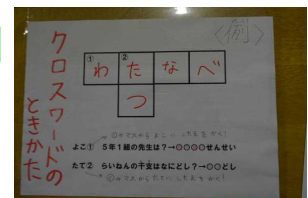 〈例〉
クロスワードの
ときかた
① ②
わたなべ
つ
よこ① 5年1組の先生は?→○○○○せんせい
たて② らいねんの干支はなにどし?→○○どし